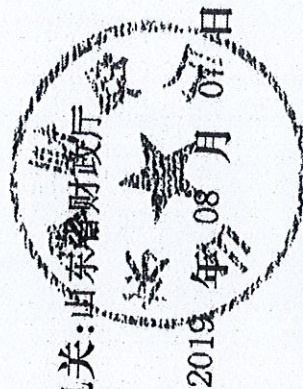 关:山东省财政厅
2019 年 08 月 07 日